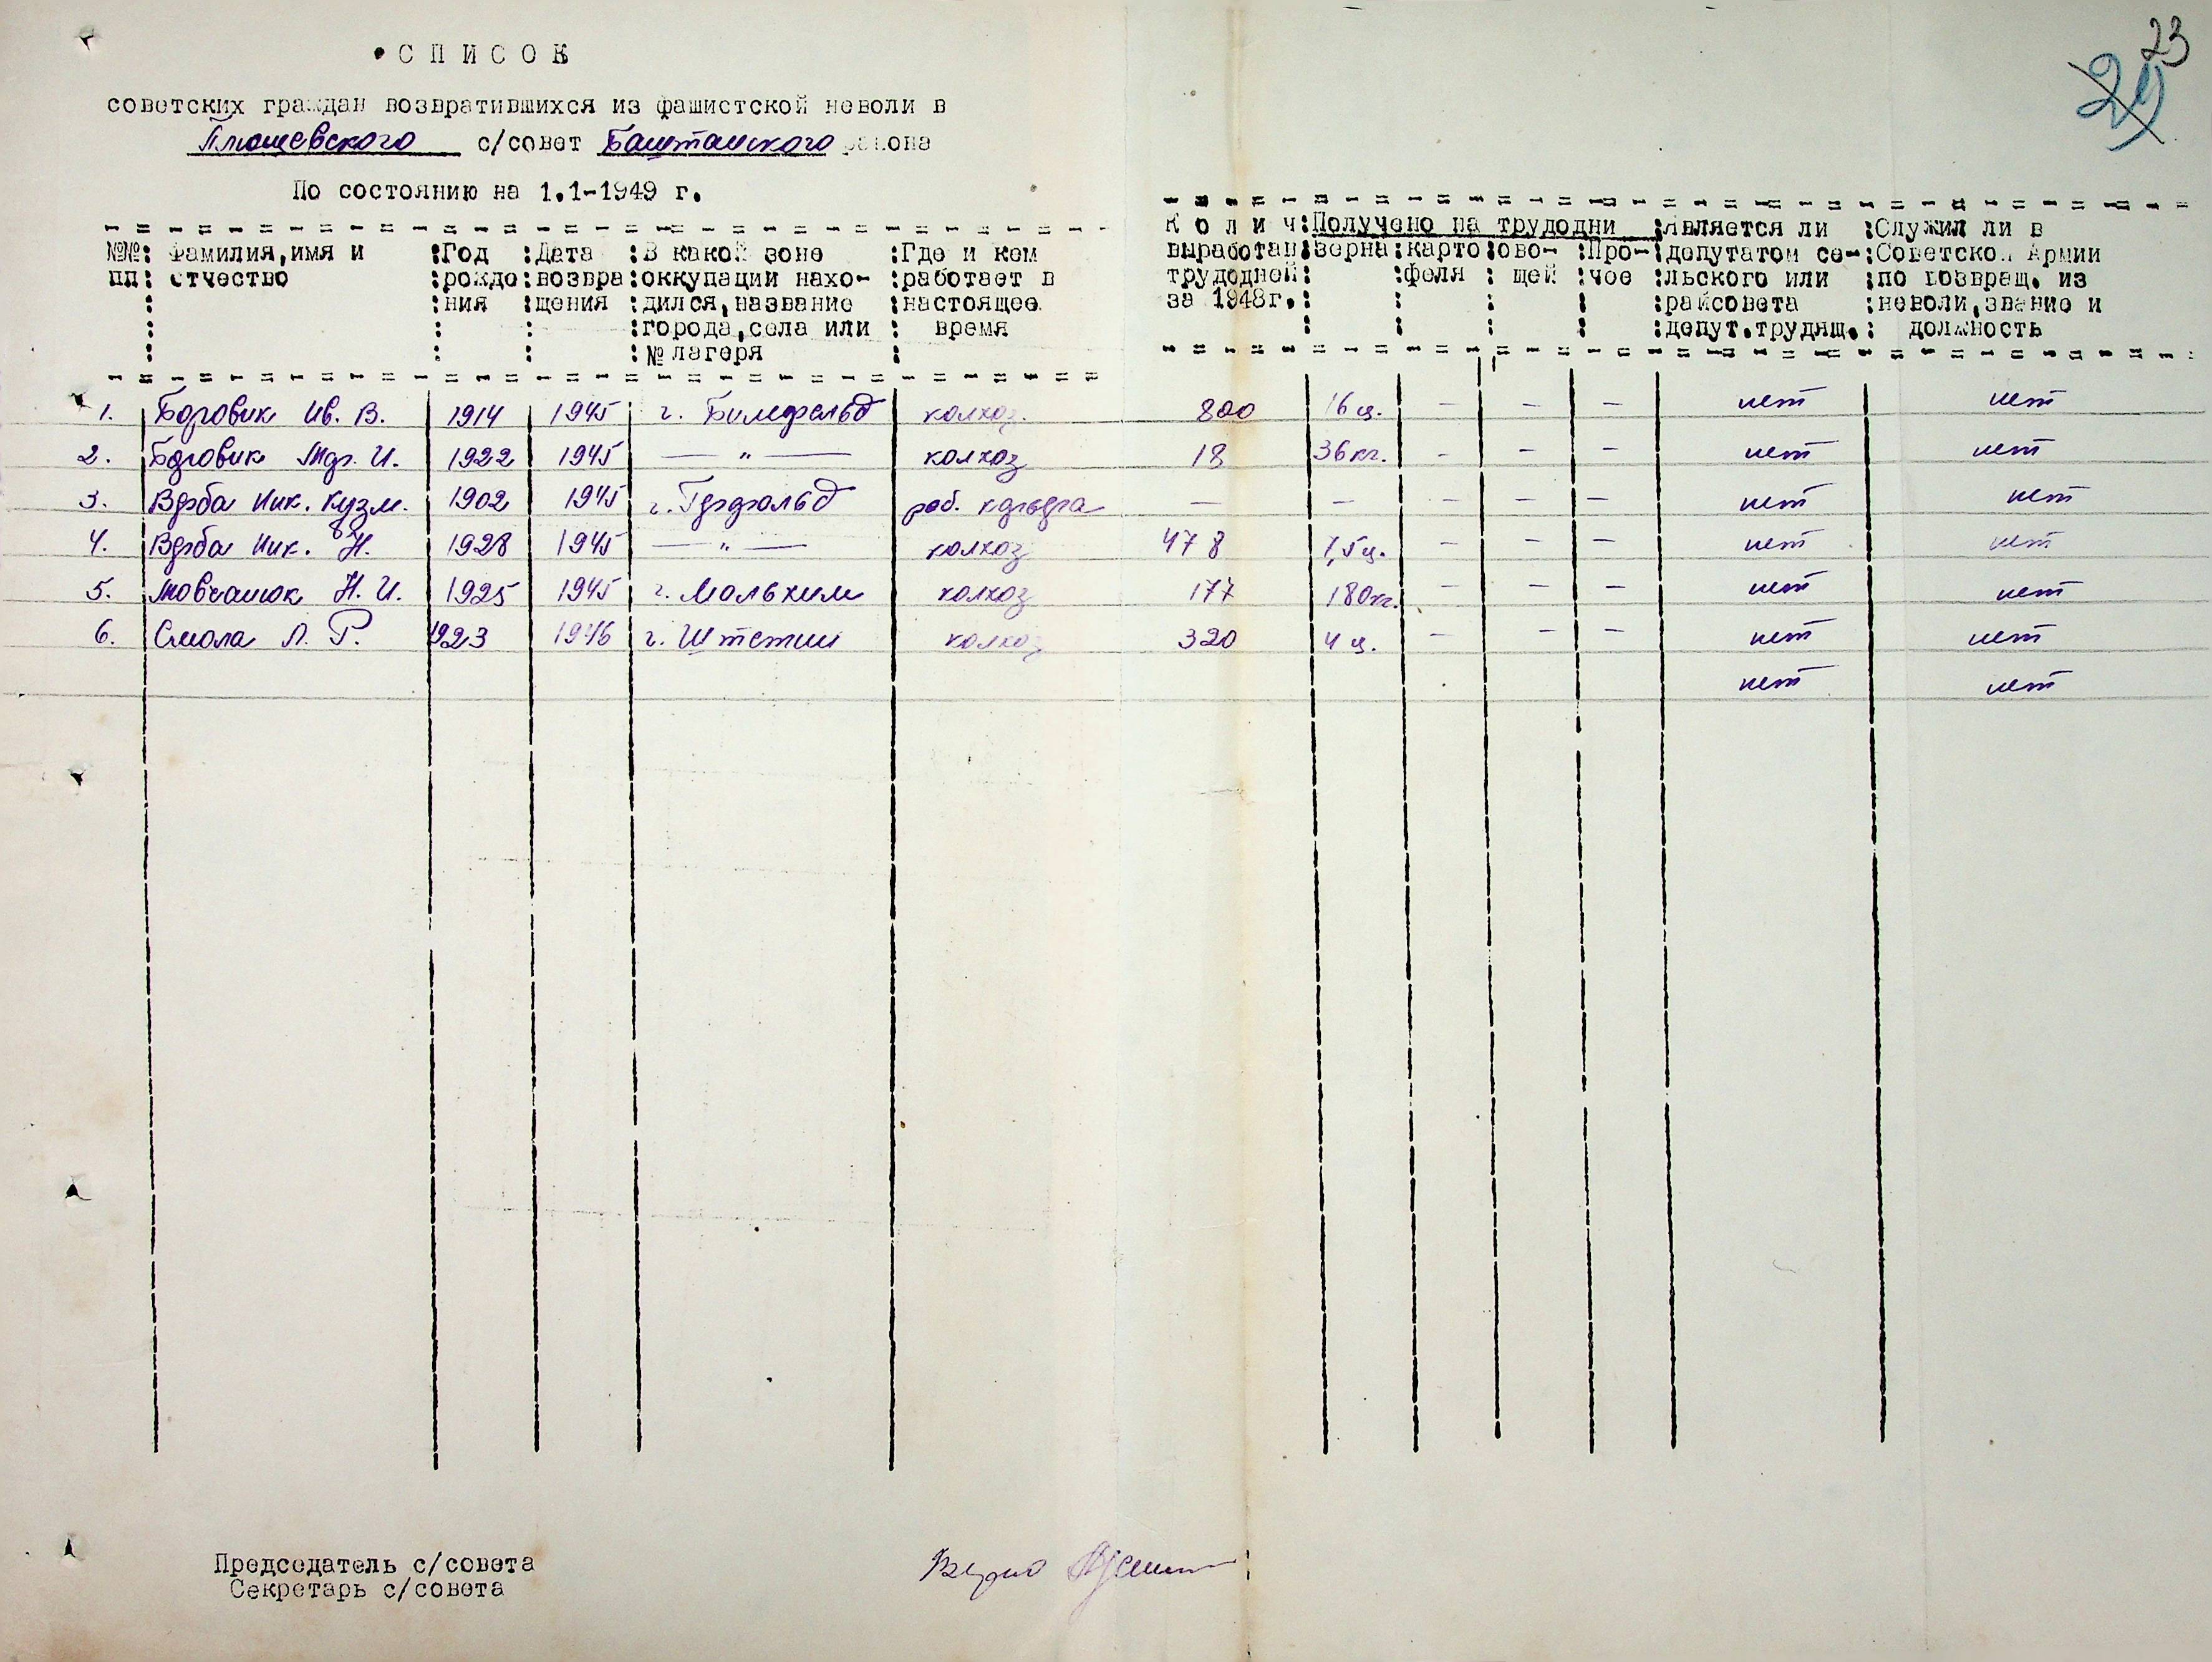 23
СПИСОК
советских граждан возвратившихся из фашистской неволи в
Плющевского с/совет Баштанского района
По состоянию на 1.1-1949 г.
№№ пп : Фамилия,имя и отчество : Год рождения : Дата возвращения : В какой зоне оккупации находился,название города,села или № лагеря : Где и кем работает в настоящее время : Колич выработан трудодней за 1948г. : Получено на трудодни : зерна : картофеля : овощей : Прочее : Является ли депутатом сельского или райсовета депут.трудящ. : Служил ли в Советской Армии по возвращ. из неволи,звание и должность
1. Боровик Ив. В. 1914 1945 г. Билефельд колхоз 800 16 ц. — — — нет нет
2. Боровик Мдр. И. 1922 1945 — " — колхоз 18 36 кг. - - - нет нет
3. Верба Ник. Кузм. 1902 1945 раб. — — - - - нет нет
4. Верба Ник. Н. 1928 1945 — " — колхоз 478 7,5 ц. - - - нет нет
5. Мовчанюк Н. И. 1925 1945 г. Мольхим колхоз 177 180 кг. - - - нет нет
6. Смола Л. Г. 1923 1946 г. Штетин колхоз 320 4 ц. - - - нет нет
нет нет
Председатель с/совета
Секретарь с/совета